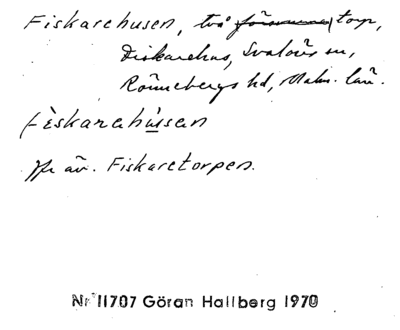 Fiskarehusen, två torp,
Diskarehus, Svalövs sn,
Rönnebergs hd, Malm. län.
Fèskarahúsen
Jfr äv. Fiskaretorpen.
Nr 11707 Göran Hallberg 1970